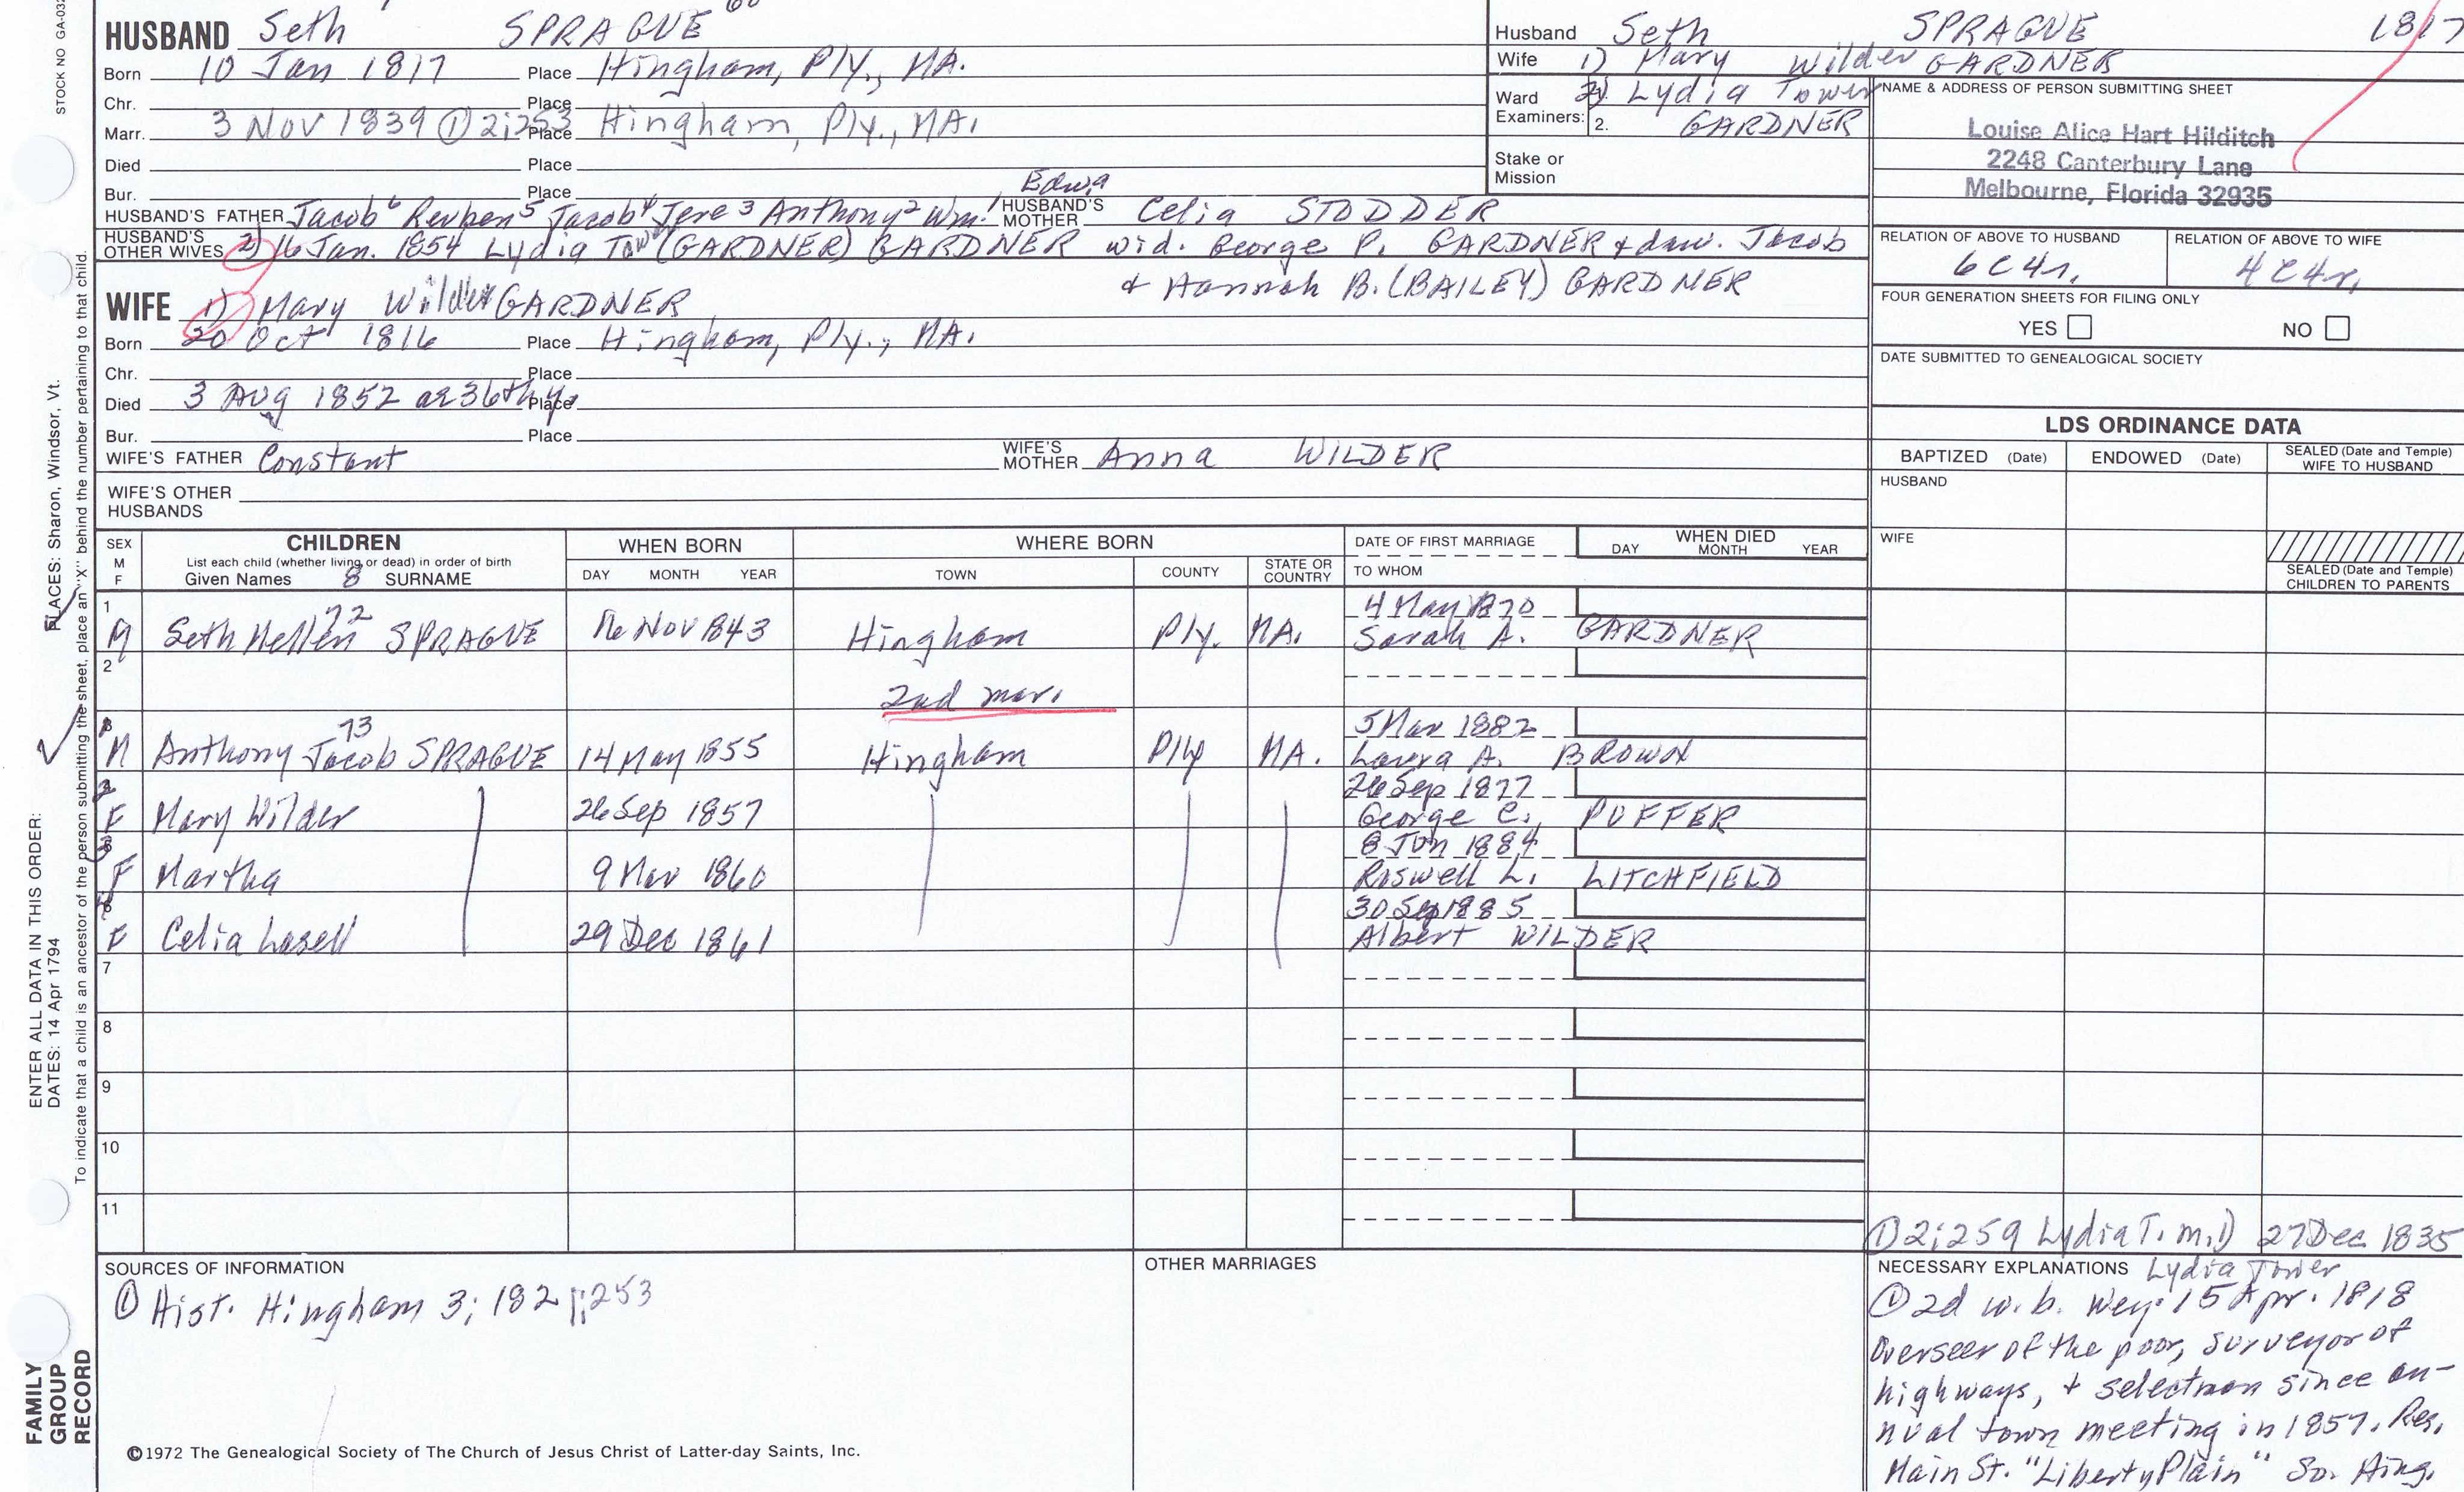 STOCK NO GA-032
60
HUSBAND Seth SPRAGUE
Born 10 Jan 1817 Place Hingham, Ply., MA.
Chr. Place
Marr. 3 Nov 1839 ① 2;253 Place Hingham, Ply., MA.
Died Place
Bur. Place
Edwa
HUSBAND'S FATHER Jacob 6 Reuben 5 Jacob 4 Jere 3 Anthony 2 Wm. 1 HUSBAND'S MOTHER Celia STODDER
HUSBAND'S OTHER WIVES 2) 16 Jan. 1854 Lydia Tow (GARDNER) GARDNER wid. George P. GARDNER + dau. Jacob
+ Hannah B. (BAILEY) GARDNER
WIFE 1) Mary Wilder GARDNER
Born 20 Oct 1816 Place Hingham, Ply., MA.
Chr. Place
Died 3 Aug 1852 ae 36th y. Place
Bur. Place
WIFE'S FATHER Constant WIFE'S MOTHER Anna WILDER
WIFE'S OTHER HUSBANDS
Husband Seth SPRAGUE 1817
Wife 1) Mary Wilder GARDNER
Ward 2) Lydia Tower
Examiners: 2. GARDNER
Stake or
Mission
NAME & ADDRESS OF PERSON SUBMITTING SHEET
Louise Alice Hart Hilditch
2248 Canterbury Lane
Melbourne, Florida 32935
RELATION OF ABOVE TO HUSBAND RELATION OF ABOVE TO WIFE
6C4r. 4C4r.
FOUR GENERATION SHEETS FOR FILING ONLY
YES NO
DATE SUBMITTED TO GENEALOGICAL SOCIETY
LDS ORDINANCE DATA
BAPTIZED (Date) ENDOWED (Date) SEALED (Date and Temple) WIFE TO HUSBAND
HUSBAND
WIFE
SEALED (Date and Temple) CHILDREN TO PARENTS
SEX M F
CHILDREN
List each child (whether living or dead) in order of birth
Given Names 8 SURNAME
WHEN BORN
DAY MONTH YEAR
WHERE BORN
TOWN COUNTY STATE OR COUNTRY
DATE OF FIRST MARRIAGE
TO WHOM
WHEN DIED
DAY MONTH YEAR
1 72 4 May 1870
M Seth SPRAGUE Nov 1843 Hingham Ply. MA. Sarah A. GARDNER
2
2nd mar.
73 5 Mar 1882
M Anthony Jacob SPRAGUE 14 May 1855 Hingham Ply MA. Laura A. BROWN
2 26 Sep 1877
F Mary Wilder 26 Sep 1857 George C. PUFFER
3 8 Jun 1884
F Martha 9 Mar 1860 Roswell L. LITCHFIELD
4 30 Sep 1885
F Celia Lasell 29 Dec 1861 Albert WILDER
7
8
9
10
11
① 2;259 Lydia T. m.1) 27 Dec 1835
SOURCES OF INFORMATION
① Hist. Hingham 3; 182 ;253
OTHER MARRIAGES
NECESSARY EXPLANATIONS Lydia Tower
① 2d w. b. Wey. 15 Apr. 1818
Overseer of the poor, surveyor of
highways, + selectman since an-
nual town meeting in 1857. Res.
Main St. "Liberty Plain" So. Hing.
©1972 The Genealogical Society of The Church of Jesus Christ of Latter-day Saints, Inc.
ENTER ALL DATA IN THIS ORDER:
DATES: 14 Apr 1794 PLACES: Sharon, Windsor, Vt.
To indicate that a child is an ancestor of the person submitting the sheet, place an "X" behind the number pertaining to that child.
FAMILY
GROUP
RECORD